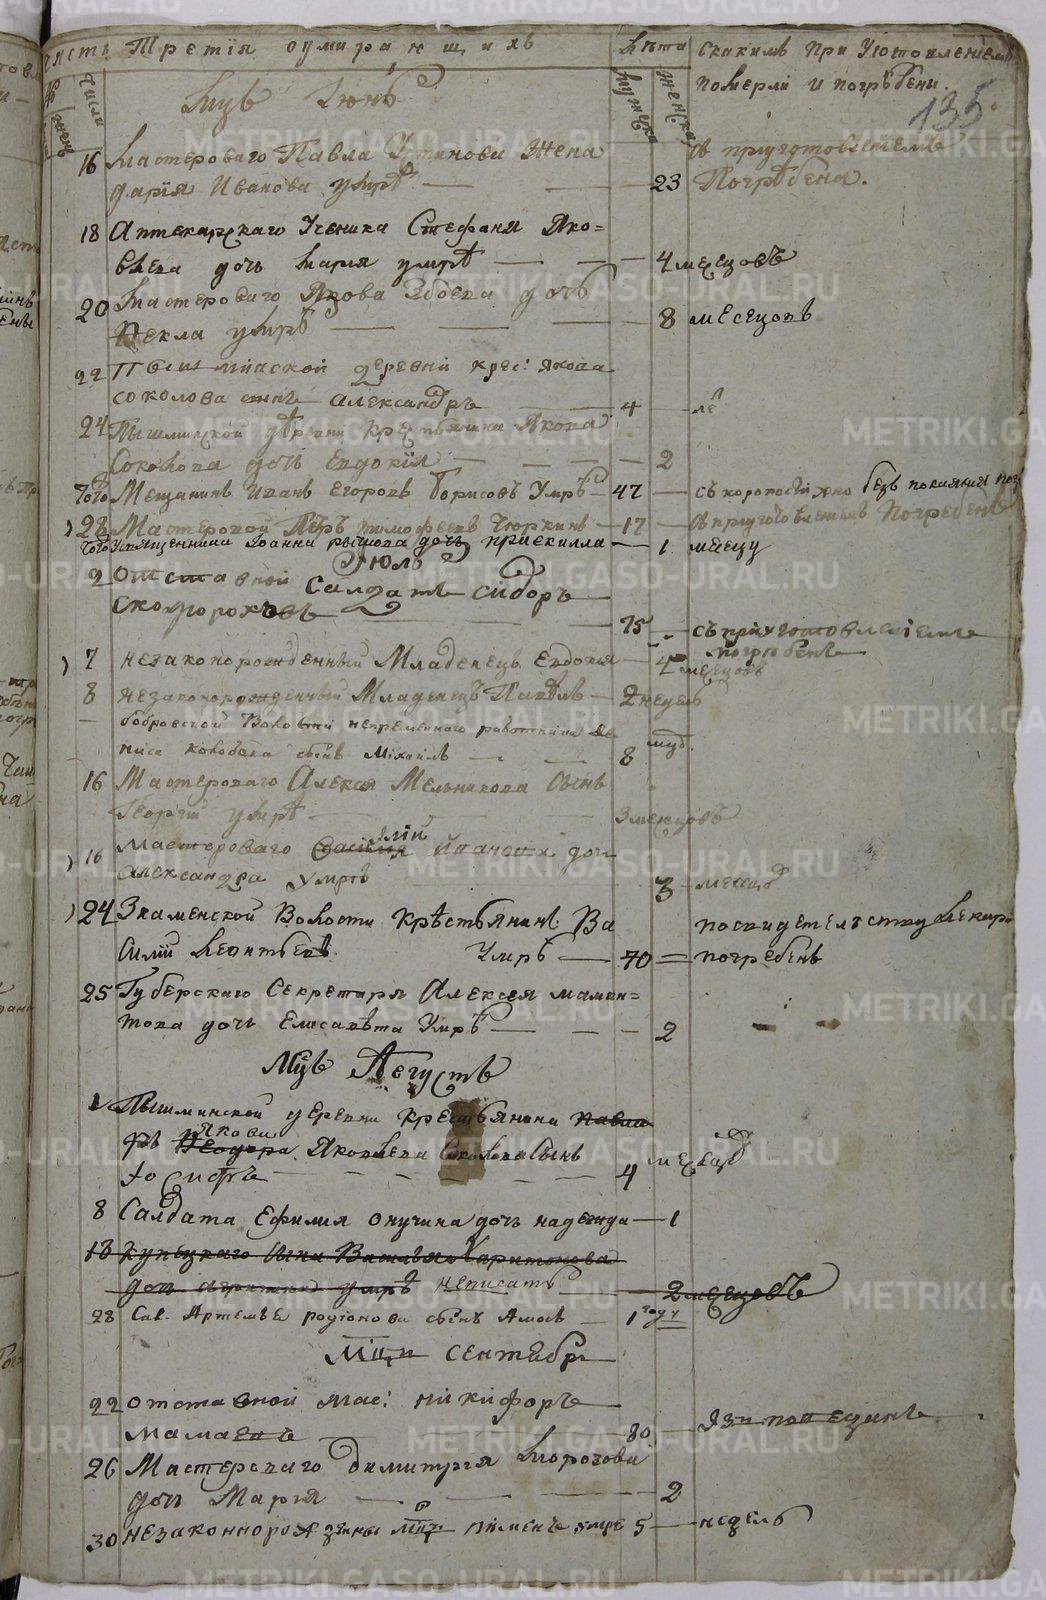 часть Третія оумирающихъ
Лѣта
скакимъ приуготовленіемъ
померлі и погрѣбени.
135.
числа
мужеска
женска
Мцъ Іюнь
16 Мастероваго Павла Устинова Жена
дарія Иванова умрѣ 23
съ приуготовѣніемъ
Погрѣбена.
18 Аптекарскаго Ученика Стефана Яко=
влева дочь марія умрѣ 4 месецовъ
20 Мастероваго Якова дочь
Фекла умрѣ 8 месецовъ
22 Пышминской деревни крес: якова
соколова сынъ александръ 4 ле
24 Пышминской деревни Крестьянина Якова
Соколова дочь Евдокія 2
Того Мещанинъ Иванъ Егоровъ Борисовъ Умръ 47
28 Мастеровой Петръ тимофеевъ Чюркинъ 17 съ приуготовленіемъ Погребенъ
того священника Іоанна дочь прискилла 1 месецу
Іюль
2 Отставной Салдатъ Сидоръ
Скоморохъвъ 75 съ приуготовленіемъ
погрѣбенъ
7 незаконорожденный Младенецъ Евдокия 4 месецовъ
8 незаконорожденный Младенецъ Павелъ 2 недель
бобровской Волости непременнаго работника де
ниса сынъ Михаилъ 8
16 Мастероваго Алексея Мельникова Сынъ
Георгій умрѣ 3 месецовъ
16 мастероваго Василія Иванова дочь
александра умрѣ 3 месецъ
24 Знаменской Волости Крѣстьянинъ Ва
силій Леонтьевъ Умръ 70
посвидетельству Лекаря
погребенъ
25 Губерскаго Секретаря Алексея мамон=
това дочь Елисавѣта Умръ 2
Мцъ Августъ
1 Пышминской деревни крестьянина
Якова
Феодора Яковлева Соколова Сынъ
Іосифъ 4 месецъ
8 Салдата Ефимия Онучина дочь надежда 1
18 купецкаго сына Василья Харитонова
дочь агрипина умрѣ неписать 2 месецовъ
28 Сал. Артемья родіонова сынъ 1 году
Мцъ сентябрь
22 отставной мас: никифоръ
мамаевъ 80
26 Мастерскаго димитрія Морозова
дочь Марія 2
30 незаконнорожденны млд: пименъ умре 5 недель